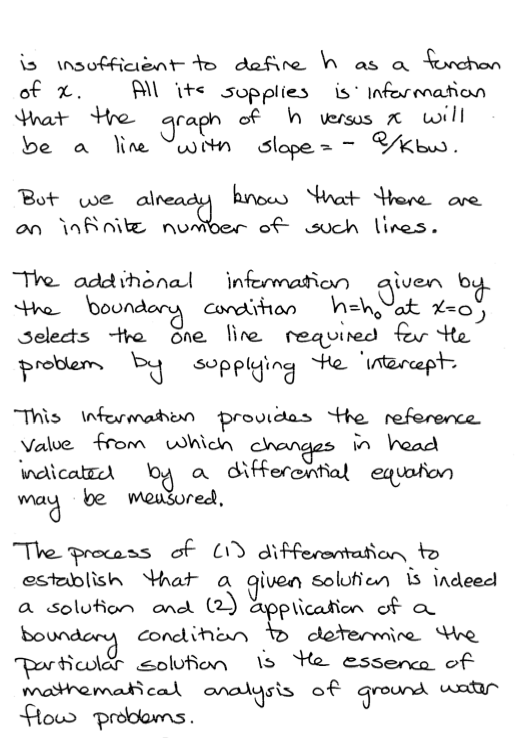 is insufficient to define h as a function
of x. All its supplies is information
that the graph of h versus x will
be a line with slope = - Q/Kbw.
But we already know that there are
an infinite number of such lines.
The additional information given by
the boundary condition h=h₀ at x=0,
selects the one line required for the
problem by supplying the intercept.
This information provides the reference
value from which changes in head
indicated by a differential equation
may be measured.
The process of (1) differentation, to
establish that a given solution is indeed
a solution and (2) application of a
boundary condition to determine the
particular solution is the essence of
mathematical analysis of ground water
flow problems.